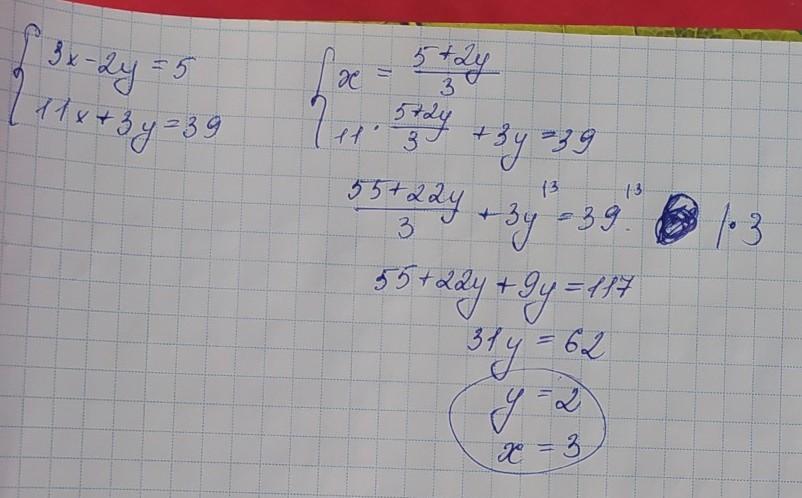 3x-2y=5
11x+3y=39
x = \frac{5+2y}{3}
11 · \frac{5+2y}{3} + 3y = 39
\frac{55+22y}{3} + 3y^{|3} = 39^{|3}. |·3
55+22y+9y=117
31y = 62
y = 2
x = 3